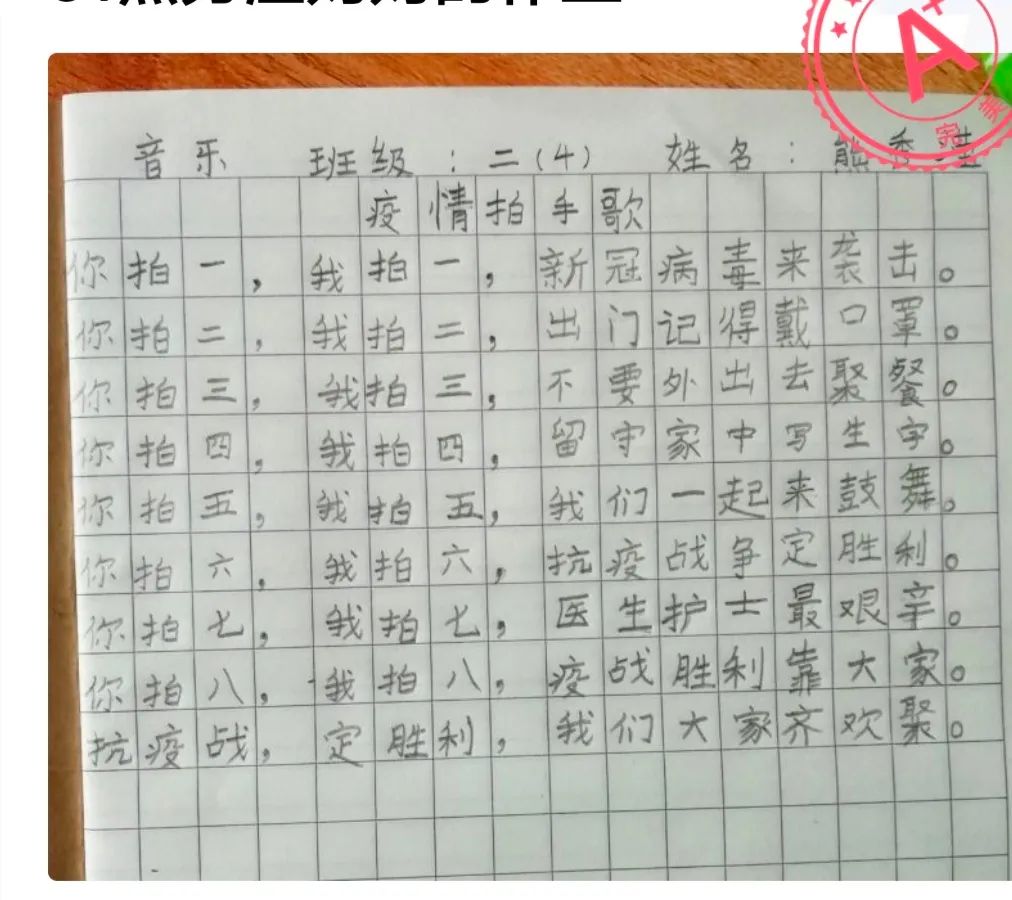 音乐 班级：二(4) 姓名：熊秀
疫情拍手歌
你拍一，我拍一，新冠病毒来袭击。
你拍二，我拍二，出门记得戴口罩。
你拍三，我拍三，不要外出去聚餐。
你拍四，我拍四，留守家中写生字。
你拍五，我拍五，我们一起来鼓舞。
你拍六，我拍六，抗疫战争定胜利。
你拍七，我拍七，医生护士最艰辛。
你拍八，我拍八，疫战胜利靠大家。
抗疫战，定胜利，我们大家齐欢聚。
A+